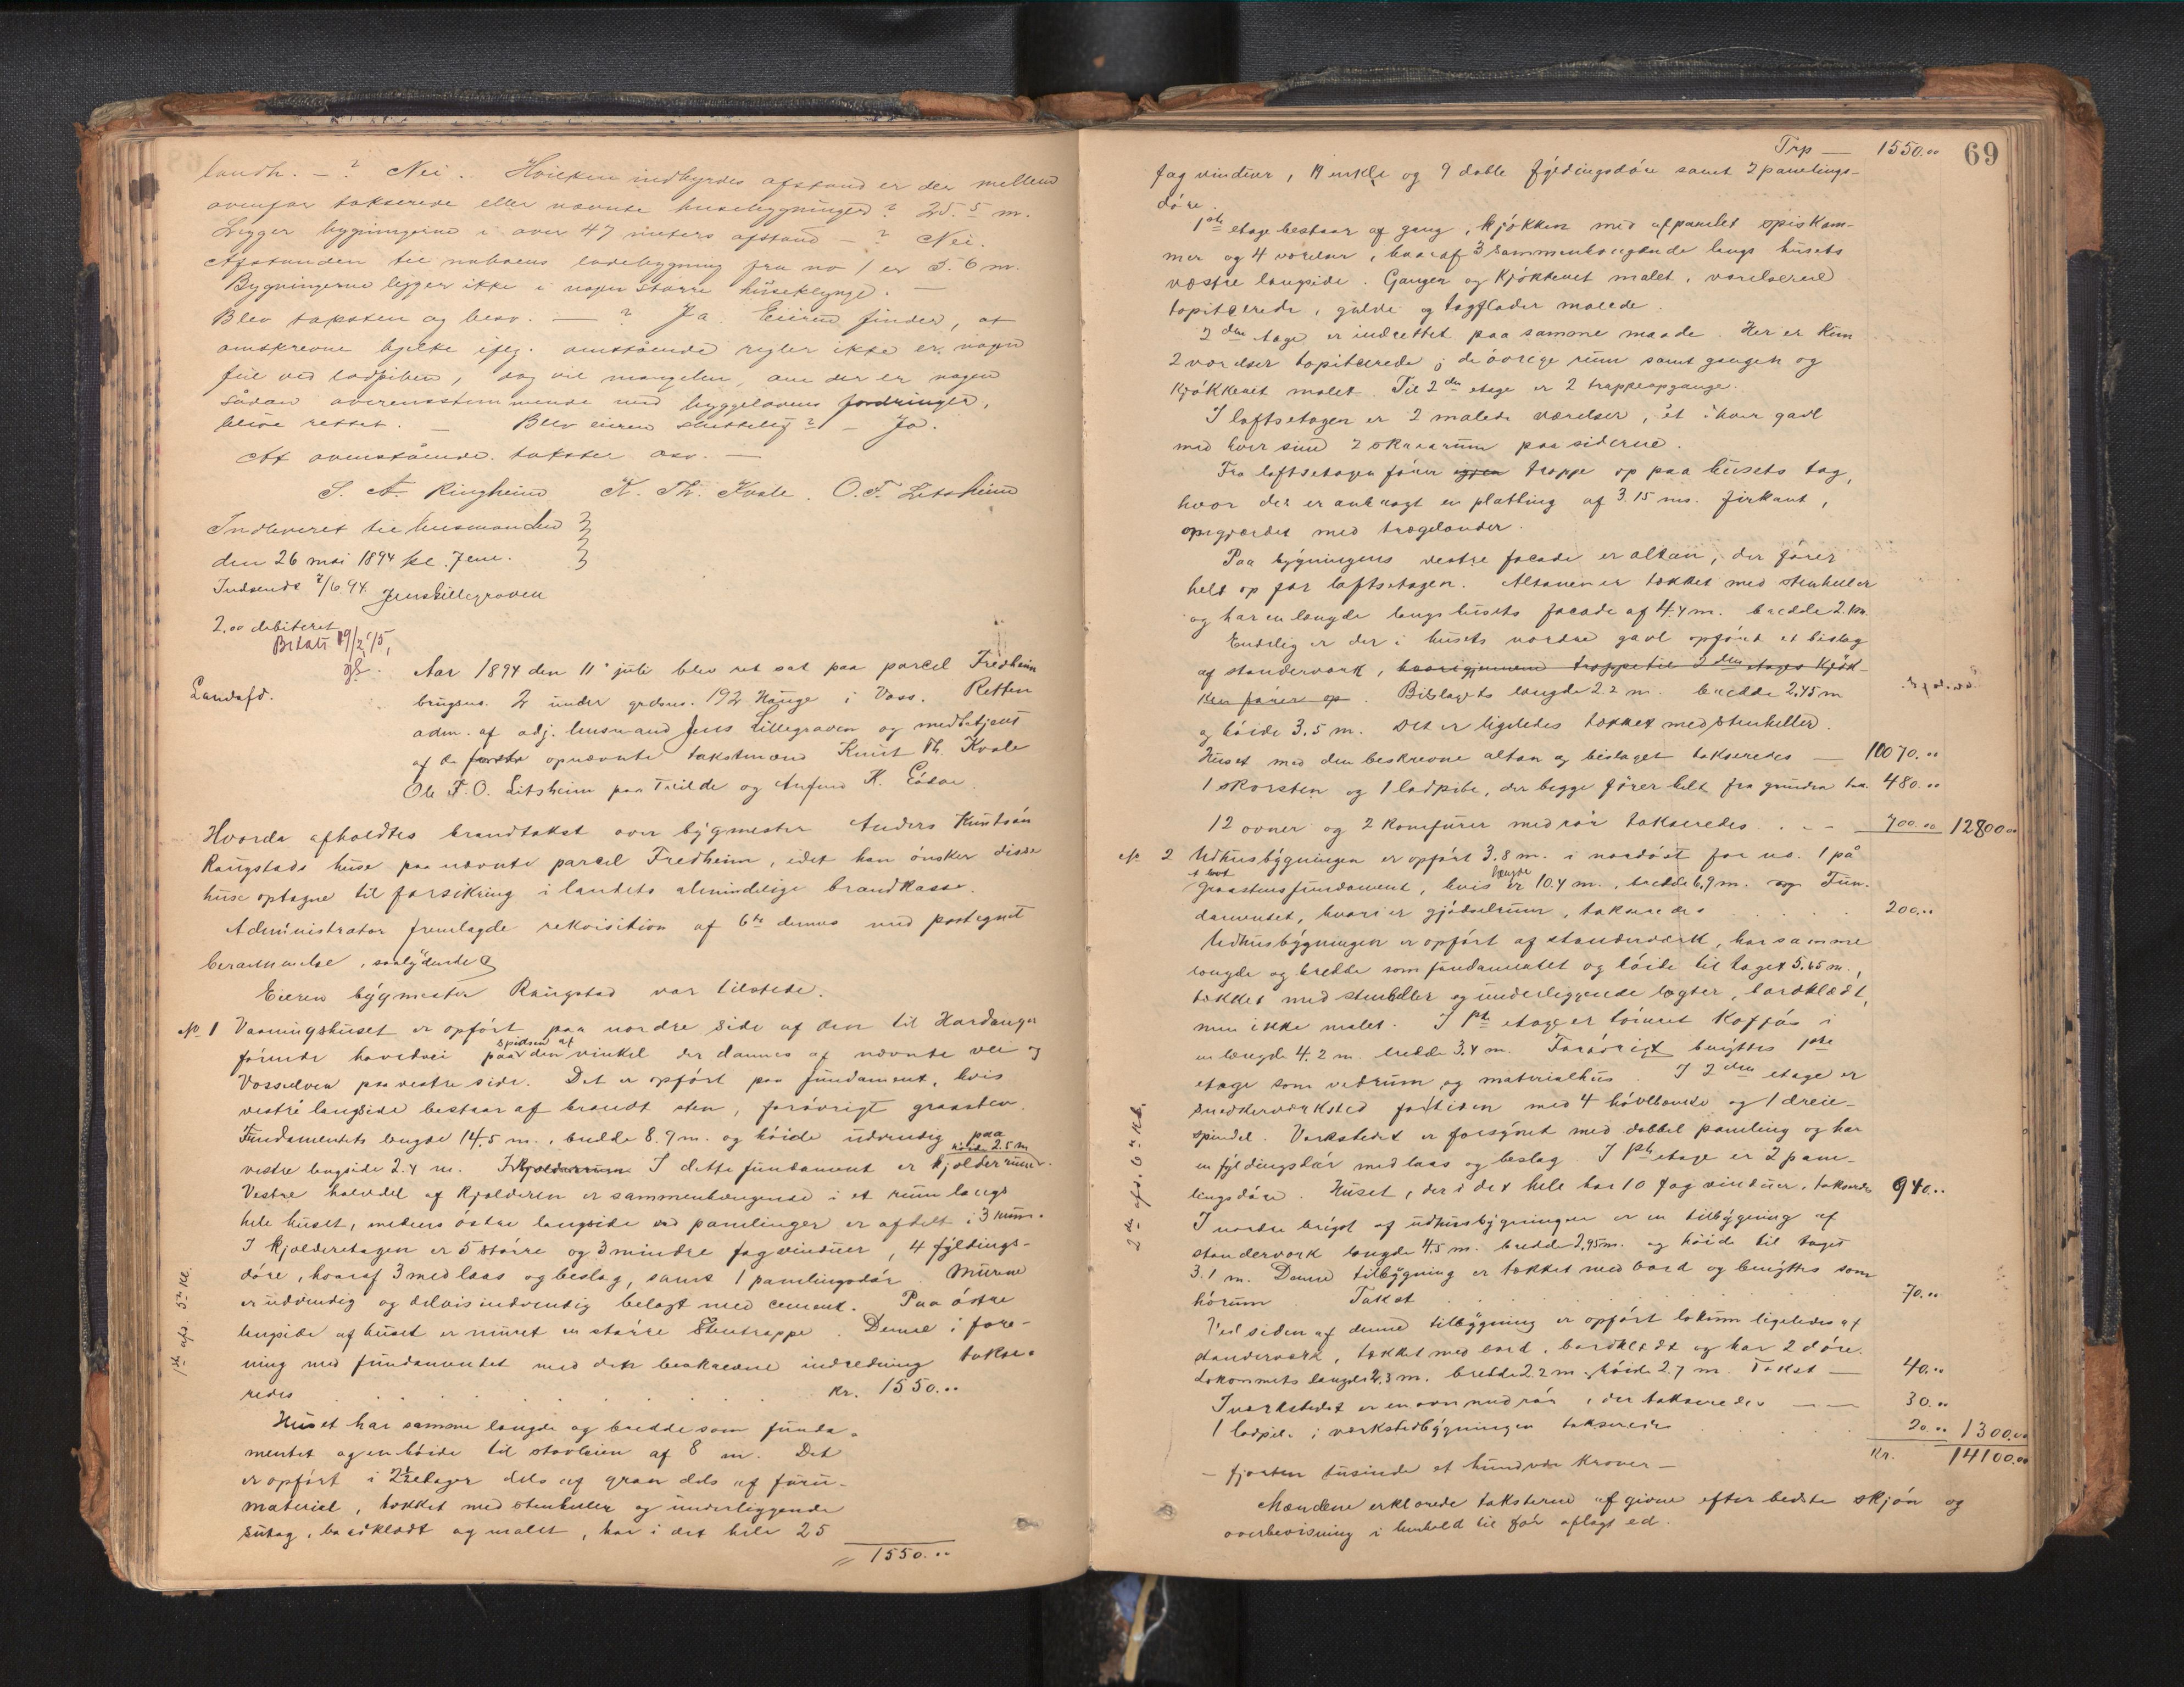 landh. – ? Nei. Hvilken indbyrdes afstand er der mellem
ovenfor takserede eller nævnte husebygninger? 25.5 m.
Ligger bygningerne i over 47 meters afstand – ? Nei.
Afstanden til naboens ladebygning fra no 1 er 5.6 m.
Bygningerne ligger ikke i nogen større huseklynge. –
Blev taksten og besv. – ? Ja. Eieren finder, at
omskrevne ifølg. omstående regler ikke er nogen
feil ved ladpiben, dog vil mangelen, om der er nogen
sådan overensstemmende med byggelovens fordringer,
blive rettet. – Blev eieren sluttelig ? – Ja.
At ovenstående takster osv. –
S. A. Ringheim K. Th. Kvale. O. T. Litsheim
Indleveret til lensmanden
den 26 mai 1894 kl. 7 em.
Indsendt 2/6 94. Jens Lillegraven
2.00 debiteret
Betalt 19/2 95,
Landafd.
Aar 1894 den 11te juli blev ret sat paa parcel Fredheim
brugsno. 2 under grdsno. 192 Hauge i Voss. Retten
adm. af adj. lensmand Jens Lillegraven og medbetjent
af de første opnævnte takstmænd Knut Th. Kvale
Ole T. O. Litsheim paa Tvilde og Anfind K.
Hvorda afholdtes brandtakst over bygmester Anders Knutsøn
Rangstads huse paa nævnte parcel Fredheim, idet han ønsker disse
huse optagne til forsikring i landets almindelige brandkasse.
Administrator fremlagde rekvisition af 6te dennes med paategnet
berammelse, saalydende
Eieren bygmester Rangstad var tilstede.
No 1 Vaaningshuset er opført paa nordre side af den til Hardanger
førende hovedvei paa spidsen af den vinkel der dannes af nævnte vei og
Vosselven paa vestre side. Det er opført paa fundament, hvis
vestre langside bestaar af brændt sten, forøvrigt graasten.
Fundamentets længde 14.5 m., bredde 8.9 m. og høide udvendig paa
vestre langside 2.4 m. I kjælderrum I dette fundament er kjælderrum høide 2.5 m.
Vestre halvdel af kjælderen er sammenhængende i et rum langs
hele huset, medens østre langside ved panelinger er afdelt i 3 rum.
I kjælderetagen er 5 større og 3 mindre fag vinduer, 4 fyldings-
døre, hvoraf 3 med laas og beslag, samt 1 panelingsdør. Murene
er udvendig og delvis indvendig belagt med cement. Paa østre
langside af huset er muret en større Stentrappe. Denne i fore-
ning med fundamentet med den beskrevne indredning takse-
redes . . . . . . . kr. 1550.00
1ste afd. 5te kl.
Huset har samme længde og bredde som funda-
mentet og en høide til stavleien af 8 m. Det
er opført i 2½ etager dels af gran dels af furu-
material, tækket med stenheller og underliggende
sutag, bordklædt og malet, har i det hele 25
1550.00
Trp — 1550.00 69
fag vinduer, 11 enkle og 9 doble fyldingsdøre samt 2 panelings-
døre.
1ste etage bestaar af gang, kjøkken med afpanelet spiskam-
mer og 4 værelser, hvoraf 3 sammenhængende langs husets
vestre langside. Gangen og Kjøkkenet malet, værelserne
tapitserede, gulve og tagflader malede.
2den etage er indrettet paa samme maade. Her er kun
2 værelser tapitserede; de øvrige rum samt gangen og
Kjøkkenet malet. Til 2den etage er 2 trappeopgange.
I loftsetagen er 2 malede værelser, et i hver gavl
med hver sine 2 skraarum paa siderne.
Fra loftsetagen fører igjen trappe op paa husets tag,
hvor der er anbragt en platting af 3.15 ms. firkant,
omgjærdet med trægelænder.
Paa bygningens vestre facade er altan, der fører
helt op for loftsetagen. Altanen er tækket med stenheller
og har en længde langs husets facade af 4.4 m. bredde 2. m.
Endelig er der i husets nordre gavl opført et bislag
af stenderværk, hvorigjennem trappe til 2den etages Kjøk-
ken fører op. Bislagets længde 2.2 m. bredde 2.45 m
og høide 3.5 m. Det er ligeledes tækket med stenheller.
Huset med den beskrevne altan og bislaget takseredes — 10070.00
1 skorsten og 1 ladpibe, der begge fører helt fra grunden tax. 480.00
12 ovner og 2 komfurer med rør takseredes . — 700.00 12800.00
No 2 Udhusbygningen er opført 3.8 m. i nordøst for no. 1 på
graastensfundament, hvis længde er 10.4 m., bredde 6.9 m. og Fun-
damentet, hvori er gjødselrum, takseredes 200.00
Udhusbygningen er opført af stenderværk, har samme
længde og bredde som fundamentet og høide til taget 5.65 m.,
tækket med stenheller og underliggende lægter, bordklædt,
men ikke malet. I 1ste etage er tømret Koffjøs i
en længde 4.2 m. bredde 3.4 m. Forøvrigt benyttes 1ste
etage som vedrum og materialhus. I 2den etage er
snedkerværksted fortiden med 4 høvlbænke og 1 dreie-
spindel. Værkstedet er forsynet med dobbel paneling og har
en fyldingsdør med laas og beslag. I 1ste etage er 2 pane-
lingsdøre. Huset, der i det hele har 10 fag vinduer, takseres 940.00
2den afd. 6te kl.
I nordre brygst af udhusbygningen er en tilbygning af
stenderværk længde 4.5 m. bredde 2.95 m. og høide til taget
3.1 m. Denne tilbygning er tækket med bord og benyttes som
hørum . Takst . . . . . 70.00
Ved siden af denne tilbygning er opført lokum ligeledes af
stenderværk, tækket med bord, bordklædt og har 2 døre.
Lokummets længde 2.3 m. bredde 2.2 m. høide 2.7 m. Takst — 40.00
I værkstedet er en ovn med rør, der takseredes — — 30.00
1 ladpibe i værkstedbygningen takseredes . . . 20.00 1300.00
Kr. 14100.00
– fjorten tusinde et hundrede Kroner –
Mændene erklærede taksterne afgivne efter bedste skjøn og
overbevisning i henhold til før aflagt ed.